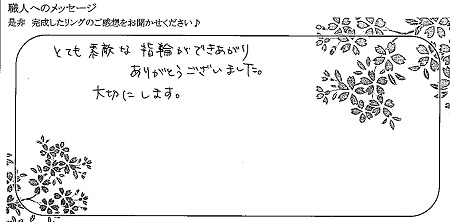 職人へのメッセージ
是非 完成したリングのご感想をお聞かせください♪
とても素敵な指輪ができあがり
ありがとうございました。
大切にします。